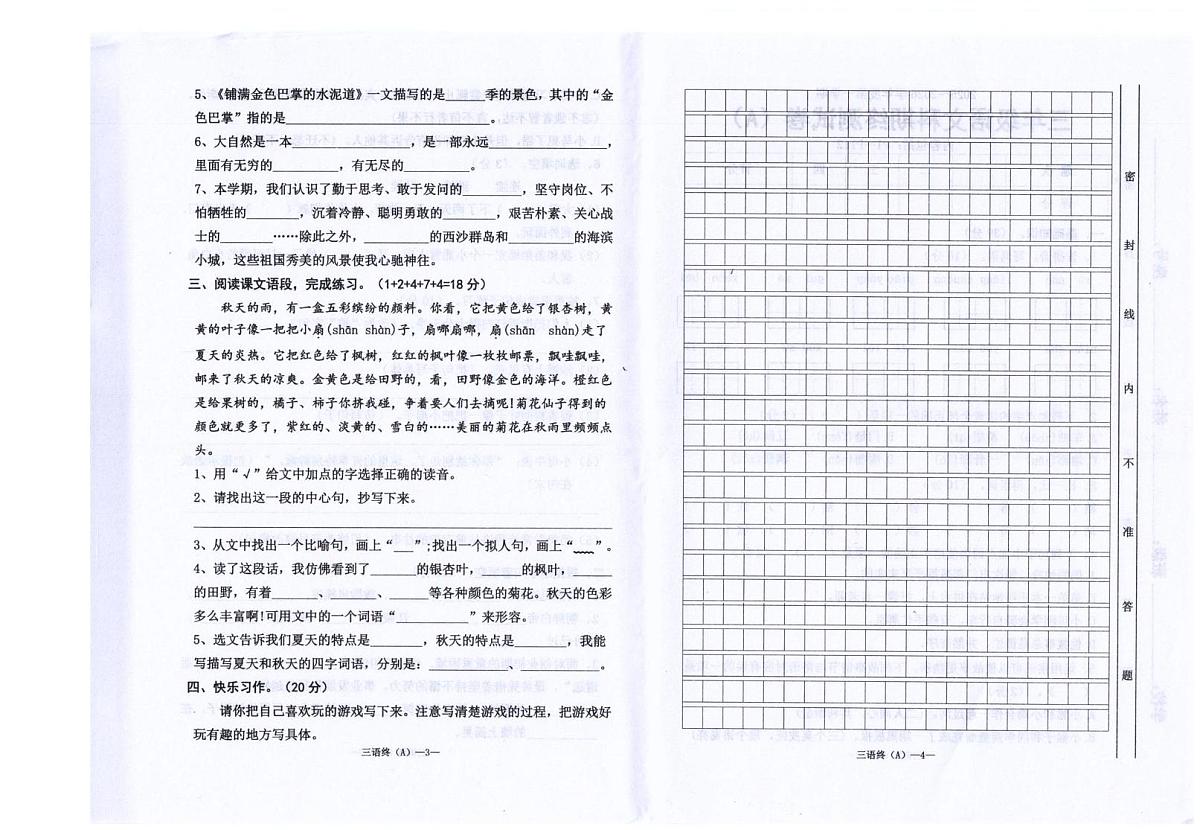 5、《铺满金色巴掌的水泥道》一文描写的是______季的景色，其中的“金
色巴掌”指的是____________________
6、大自然是一本________________，是一部永远________________，
里面有无穷的__________，有无尽的__________。
7、本学期，我们认识了勤于思考、敢于发问的________，坚守岗位、不
怕牺牲的________，沉着冷静、聪明勇敢的________，艰苦朴素、关心战
士的________……除此之外，__________的西沙群岛和__________的海滨
小城，这些祖国秀美的风景使我心驰神往。
三、阅读课文语段，完成练习。（1+2+4+7+4=18 分）
秋天的雨，有一盒五彩缤纷的颜料。你看，它把黄色给了银杏树，黄
黄的叶子像一把把小扇(shān shàn)子，扇哪扇哪，扇(shān shàn)走了
夏天的炎热。它把红色给了枫树，红红的枫叶像一枚枚邮票，飘哇飘哇，
邮来了秋天的凉爽。金黄色是给田野的，看，田野像金色的海洋。橙红色
是给果树的，橘子、柿子你挤我碰，争着要人们去摘呢!菊花仙子得到的
颜色就更多了，紫红的、淡黄的、雪白的……美丽的菊花在秋雨里频频点
头。
1、用“√”给文中加点的字选择正确的读音。
2、请找出这一段的中心句，抄写下来。
3、从文中找出一个比喻句，画上“___”;找出一个拟人句，画上“﹏﹏”。
4、读了这段话，我仿佛看到了_______的银杏叶，_______的枫叶，_______
的田野，有着_______、_______、______等各种颜色的菊花。秋天的色彩
多么丰富啊!可用文中的一个词语“___________”来形容。
5、选文告诉我们夏天的特点是________，秋天的特点是________，我能
写描写夏天和秋天的四字词语，分别是：____________、____________。
四、快乐习作。（20 分）
请你把自己喜欢玩的游戏写下来。注意写清楚游戏的过程，把游戏好
玩有趣的地方写具体。
三语终（A）—3—
三语终（A）—4—
密
封
线
内
不
准
答
题